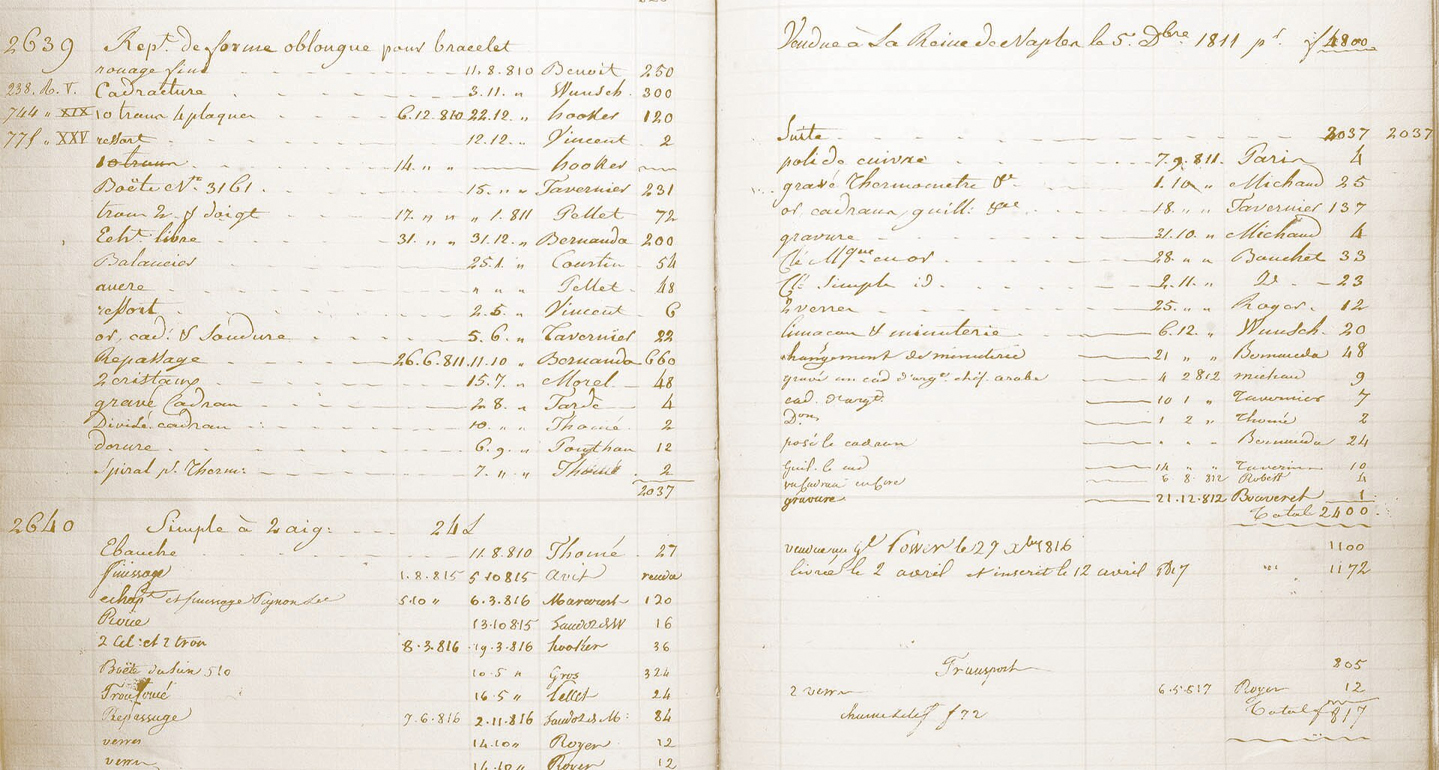 2639 Rept. de forme oblongue pour bracelet
rouage fini 11.8.810 Benoit 250
238. b. V. Cadracture 3.11. " Wunsch 300
744 " XIX 10 traux 4 plaques 6.12.810 22.12. " hooker 120
775 " XXV ressort 12.12. " Vincent 2
10 traux 14. " " hooker
Boëte No. 3161. 15. " " Tavernier 231
17. " " " 1.811 Pellet 72
Echt. libre 31. " " 31.12. " Bernauda 200
Balancier 25.1. " Courtin 54
" " " Pellet 48
ressort 2.5. " Vincent 6
or, cad: & Soudure 5.6. " Tavernier 22
Repassage 26.6.811 11.10 " Bernauda 660
2 cristaux 15.7. " Morel 48
gravé Cadran 2.8. " Tarde 4
Divisé cadran 10. " " Thomé 2
dorure 6.9. " Ponthan 12
Spiral pr. Therm: 7. " " Thomé 2
2037
2640 Simple à 2 aig: 24L
Ebauche 11.8.810 Thomé 27
finissage 1.8.815 5 10 815 avit rendu
echapt et finissage 5 10 " 6.3.816 120
Roüe 13.10 815 16
8.3.816 19.3.816 hooker 36
Boëte 510 10.5 " Gros 324
16.5 " Pellet 24
Repassage 7.6.816 2.11.816 84
verres 14.10 " Royer 12
verres 14.10 " Royer 12
Vendue à La Reine de Naples le 5. Dbre 1811 pr. f 4800
Suite 2037 2037
poli de cuivre 7.9.811. Parin 4
gravé Thermometre &c 1.10 " Michaud 25
or, cadraux, guill: &ce 18. " " Tavernier 137
gravure 31.10. " Michaud 4
Clé Mque en or 28. " " Bouchet 33
Clé Simple id. 2.11. " Do 23
2 verres 25. " " Roger 12
limacon & minuterie 6.12. " Wunsch 20
changement de minuterie 21 " " Bernauda 48
gravé un cad d'argt. chif. arabe 4 2 812 michau 9
cad. d'argt. 10 1 " Tavernier 7
Don 1 2 " Thomé 2
posé le cadran " " " Bernauda 24
Guil. le cad 14 " " Tavernier 10
6.8.812 Robert 4
gravure 21.12.812 Bouveret 1
Total 2400.
le 27 xbre 1816 1100
livrée le 2 avril et inscrit le 12 avril 1817 1172
Transport 805
2 verres 6.5.817 Royer 12
f 72 Total f 817